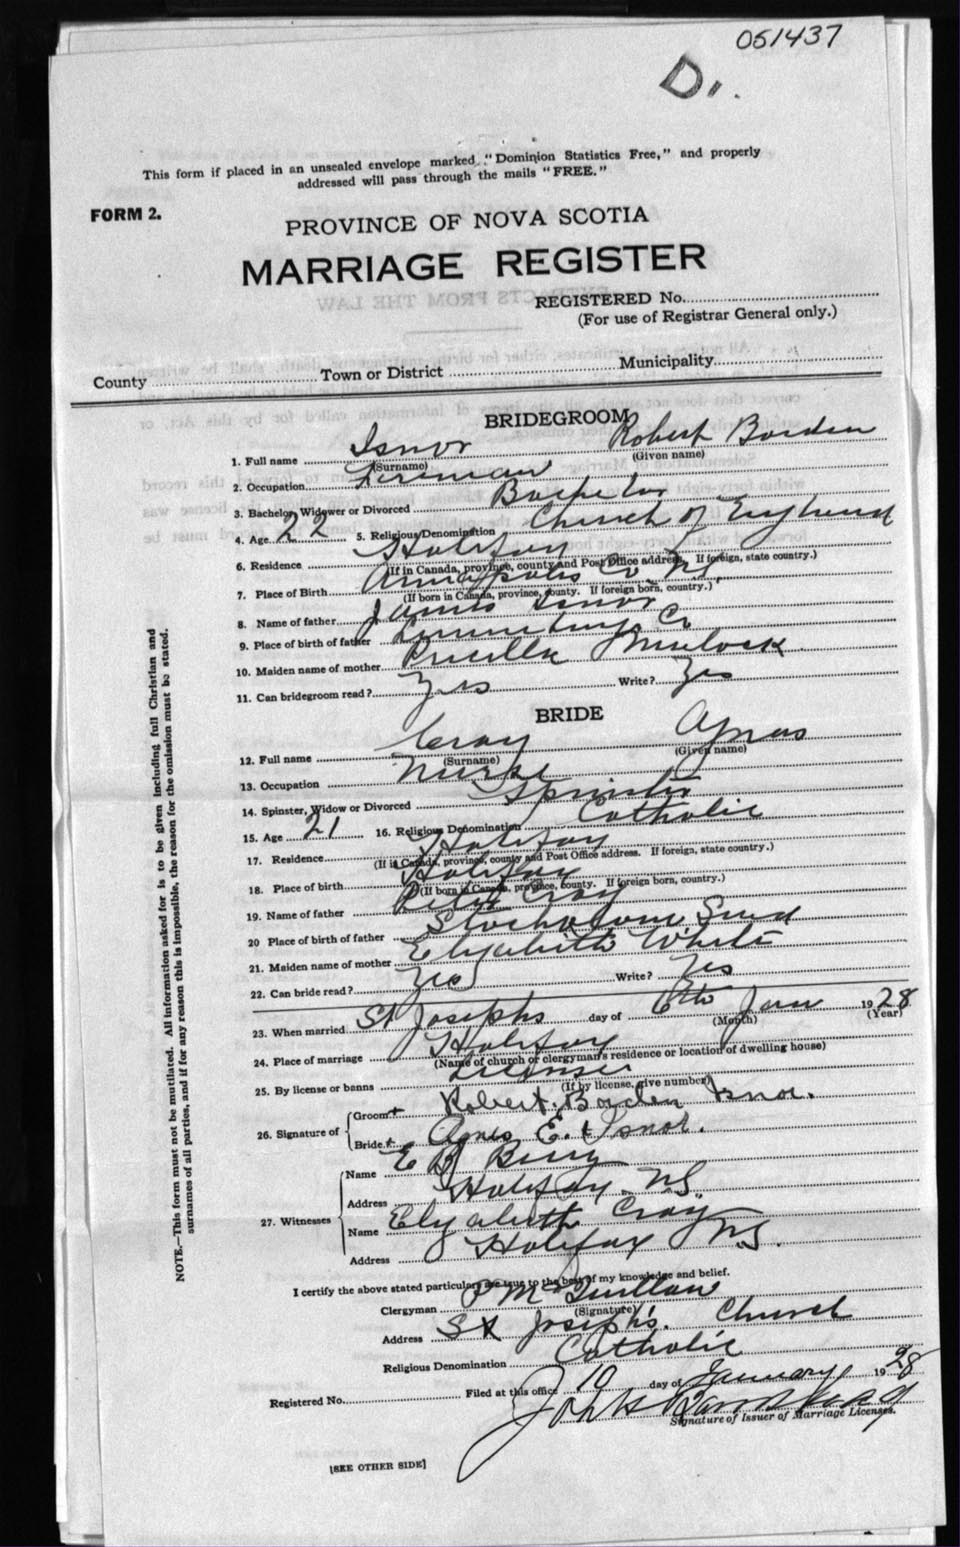 051437
D1.
This form if placed in an unsealed envelope marked "Dominion Statistics Free," and properly
addressed will pass through the mails "FREE."
FORM 2.
PROVINCE OF NOVA SCOTIA
MARRIAGE REGISTER
REGISTERED No.
(For use of Registrar General only.)
County Town or District Municipality
BRIDEGROOM
1. Full name Isnor Robert Borden
(Surname) (Given name)
2. Occupation Fireman
3. Bachelor, Widower or Divorced Bachelor
4. Age 22 5. Religious Denomination Church of England
6. Residence Halifax
(If in Canada, province, county and Post Office address. If foreign, state country.)
7. Place of Birth Annapolis Co NS
(If born in Canada, province, county. If foreign born, country.)
8. Name of father James Isnor
9. Place of birth of father Lunenburg Co
10. Maiden name of mother Pricilla
11. Can bridegroom read? Yes Write? Yes
BRIDE
12. Full name Cray Agnes
(Surname) (Given name)
13. Occupation Nurse
14. Spinster, Widow or Divorced Spinster
15. Age 21 16. Religious Denomination Catholic
17. Residence Halifax
(If in Canada, province, county and Post Office address. If foreign, state country.)
18. Place of birth Halifax
(If born in Canada, province, county. If foreign born, country.)
19. Name of father Peter Cray
20 Place of birth of father Stocholom
21. Maiden name of mother Elizabeth White
22. Can bride read? Yes Write? Yes
23. When married St Josephs day of 6th Jan 1928
(Month) (Year)
24. Place of marriage Halifax
(Name of church or clergyman's residence or location of dwelling house)
25. By license or banns License
(If by license, give number)
26. Signature of Groom + Robert. Borden Isnor.
Bride + Agnes E. + Isnor.
27. Witnesses Name E B Berry
Address Halifax NS
Name Elyabeth Cray
Address Halifax NS.
I certify the above stated particulars are true to the best of my knowledge and belief.
Clergyman McQuillan
(Signature)
Address St Joseph's. Church
Religious Denomination Catholic
Registered No. Filed at this office 10 day of January 1928
Signature of Issuer of Marriage Licenses.
[SEE OTHER SIDE]
NOTE.—This form must not be mutilated. All information asked for is to be given including full Christian and
surnames of all parties, and if for any reason this is impossible, the reason for the omission must be stated.